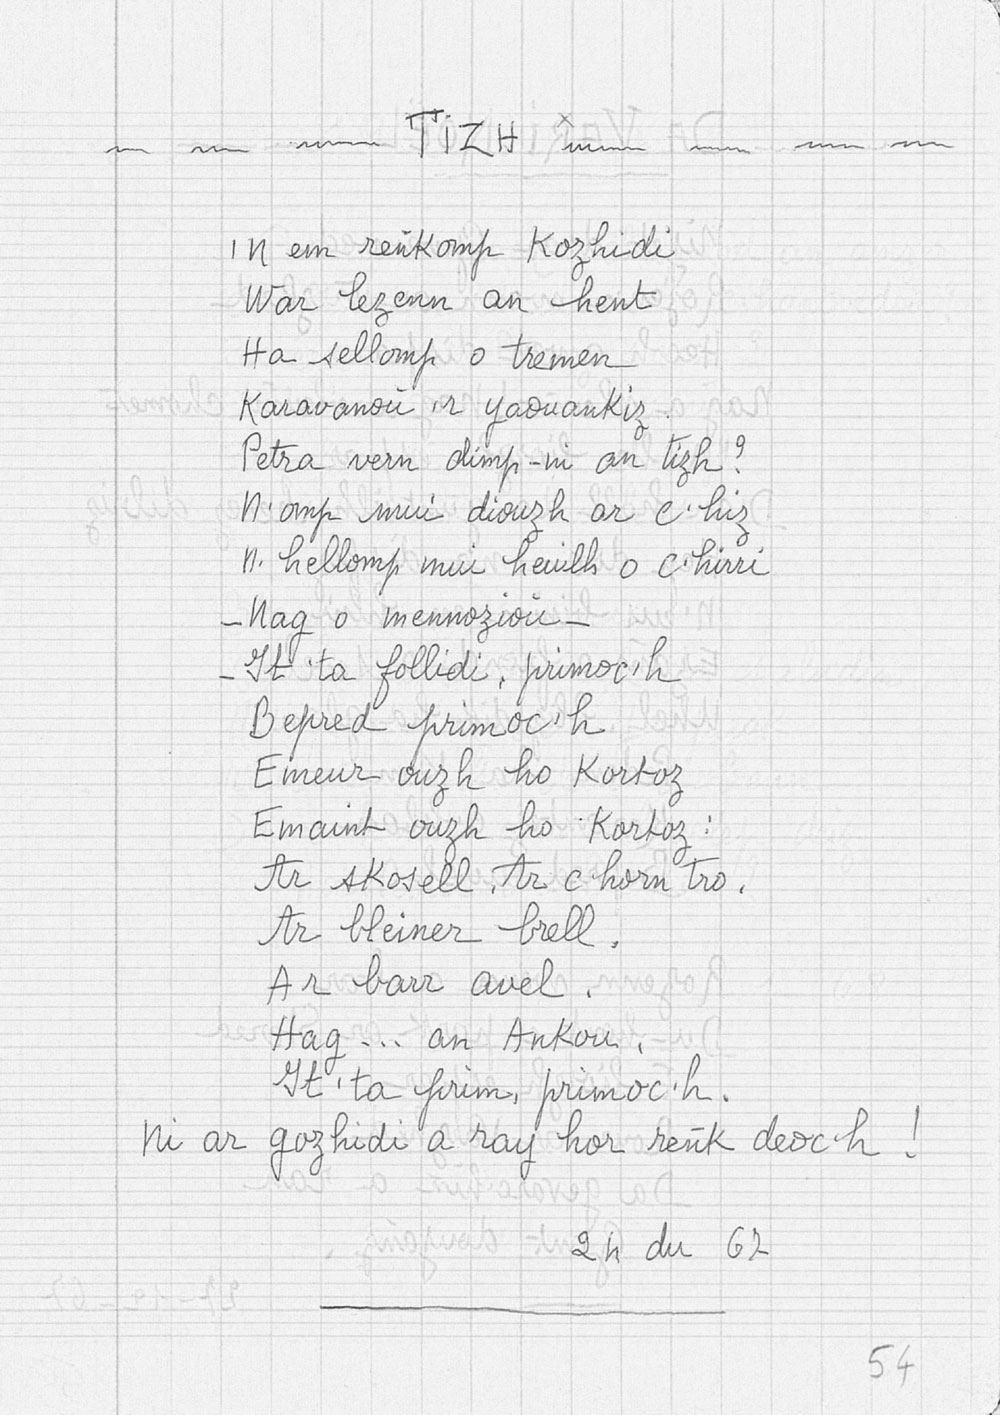 TIZH
'N em reñkomp Kozhidi
War lezenn an hent
Ha sellomp o tremen
Karavanoù 'r yaouankiz.
Petra vern dimp-ni an tizh?
N'omp mui diouzh ar c'hiz
N'hellomp mui heuilh o c'hirri
-Nag o mennozioù-
-It 'ta follidi, primoc'h
Bepred primoc'h
Emeur ouzh ho Kortoz
Emaint ouzh ho Kortoz:
Ar skosell, Ar c'horn tro,
Ar bleiner brell,
Ar barr avel,
Hag... an Ankou,
It 'ta prim, primoc'h.
Ni ar gozhidi a ray hor reñk deoc'h!
du 67
54